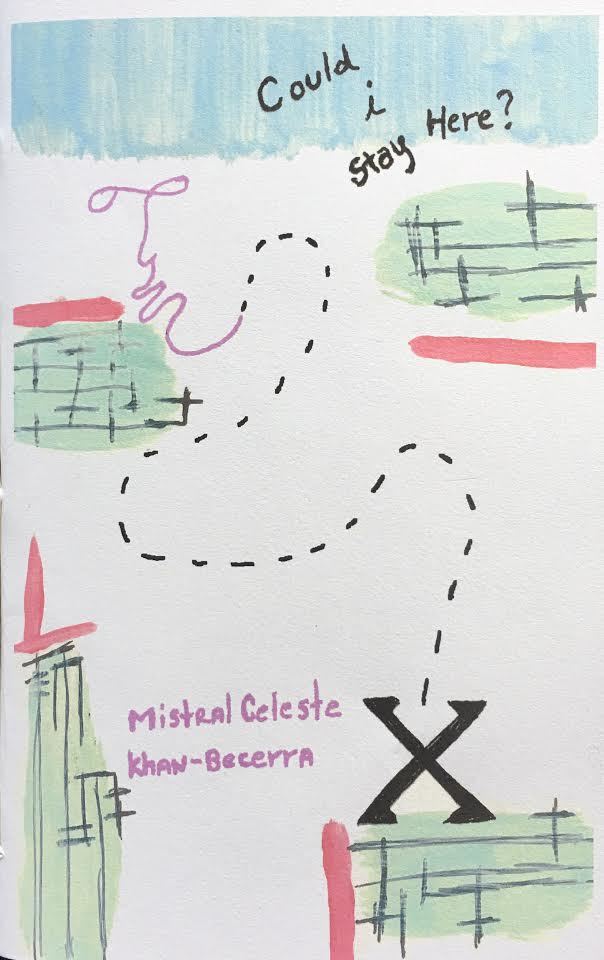 Could
i
stay Here?
Mistral Celeste
Khan-Becerra
X